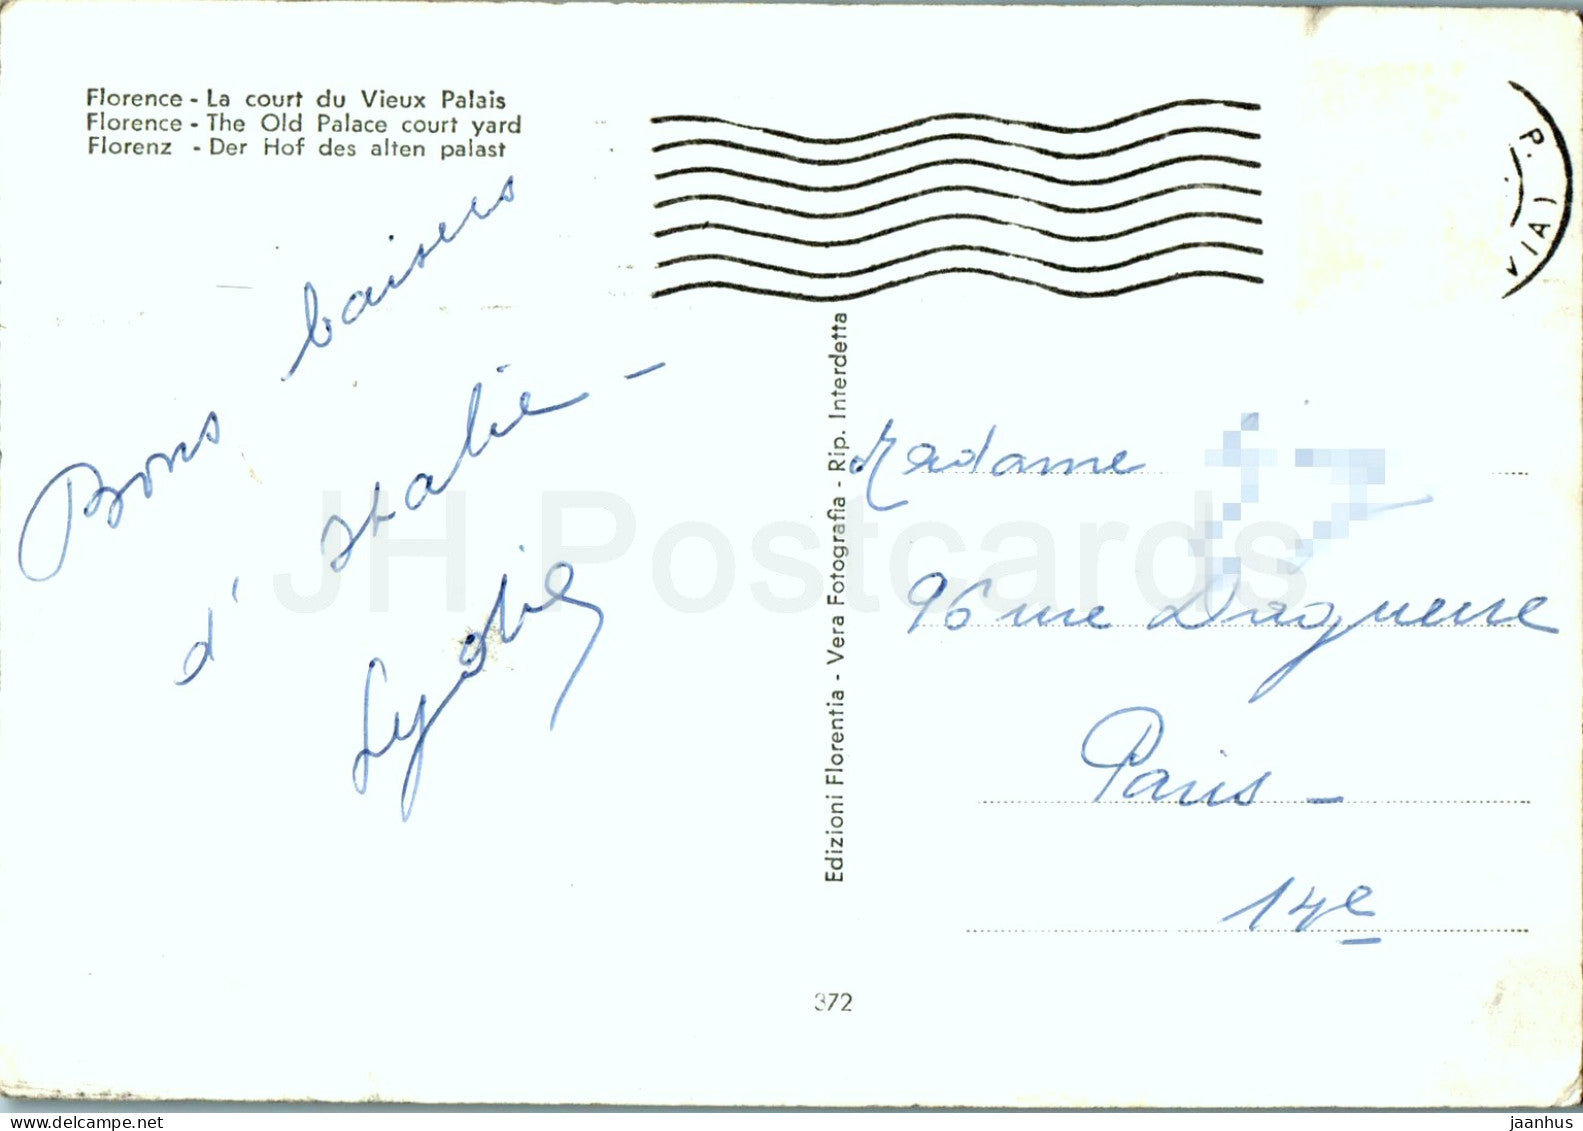 Florence - La court du Vieux Palais
Florence - The Old Palace court yard
Florenz - Der Hof des alten palast
Bons baisers
d'Italie -
Edizioni Florentia - Vera Fotografia - Rip. Interdetta
Madame
96 rue Daguerre
Paris -
14e
372
JH Postcards
delcampe.net
jaanhus